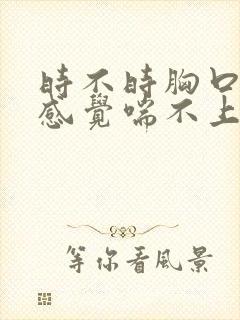 時不時胸口
感覺喘不上
等你看風景